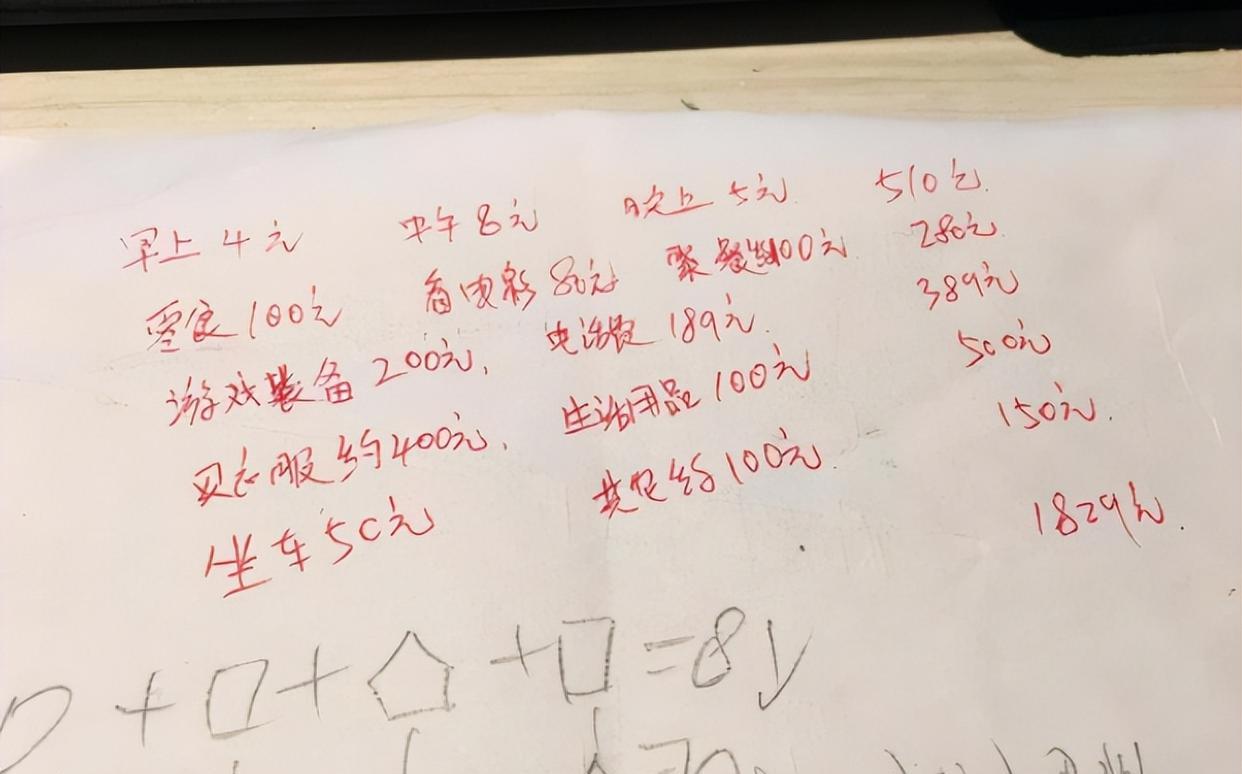 早上 4元 中午 8元 晚上 5元 510元.
零食 100元 看电影 80元 聚餐约100元 280元
游戏装备 200元, 电话费 189元. 389元
买衣服约400元, 生活用品 100元 500元
坐车 50元 其它约 100元. 150元.
1829元.
+ □ + ⬠ + □ = 8